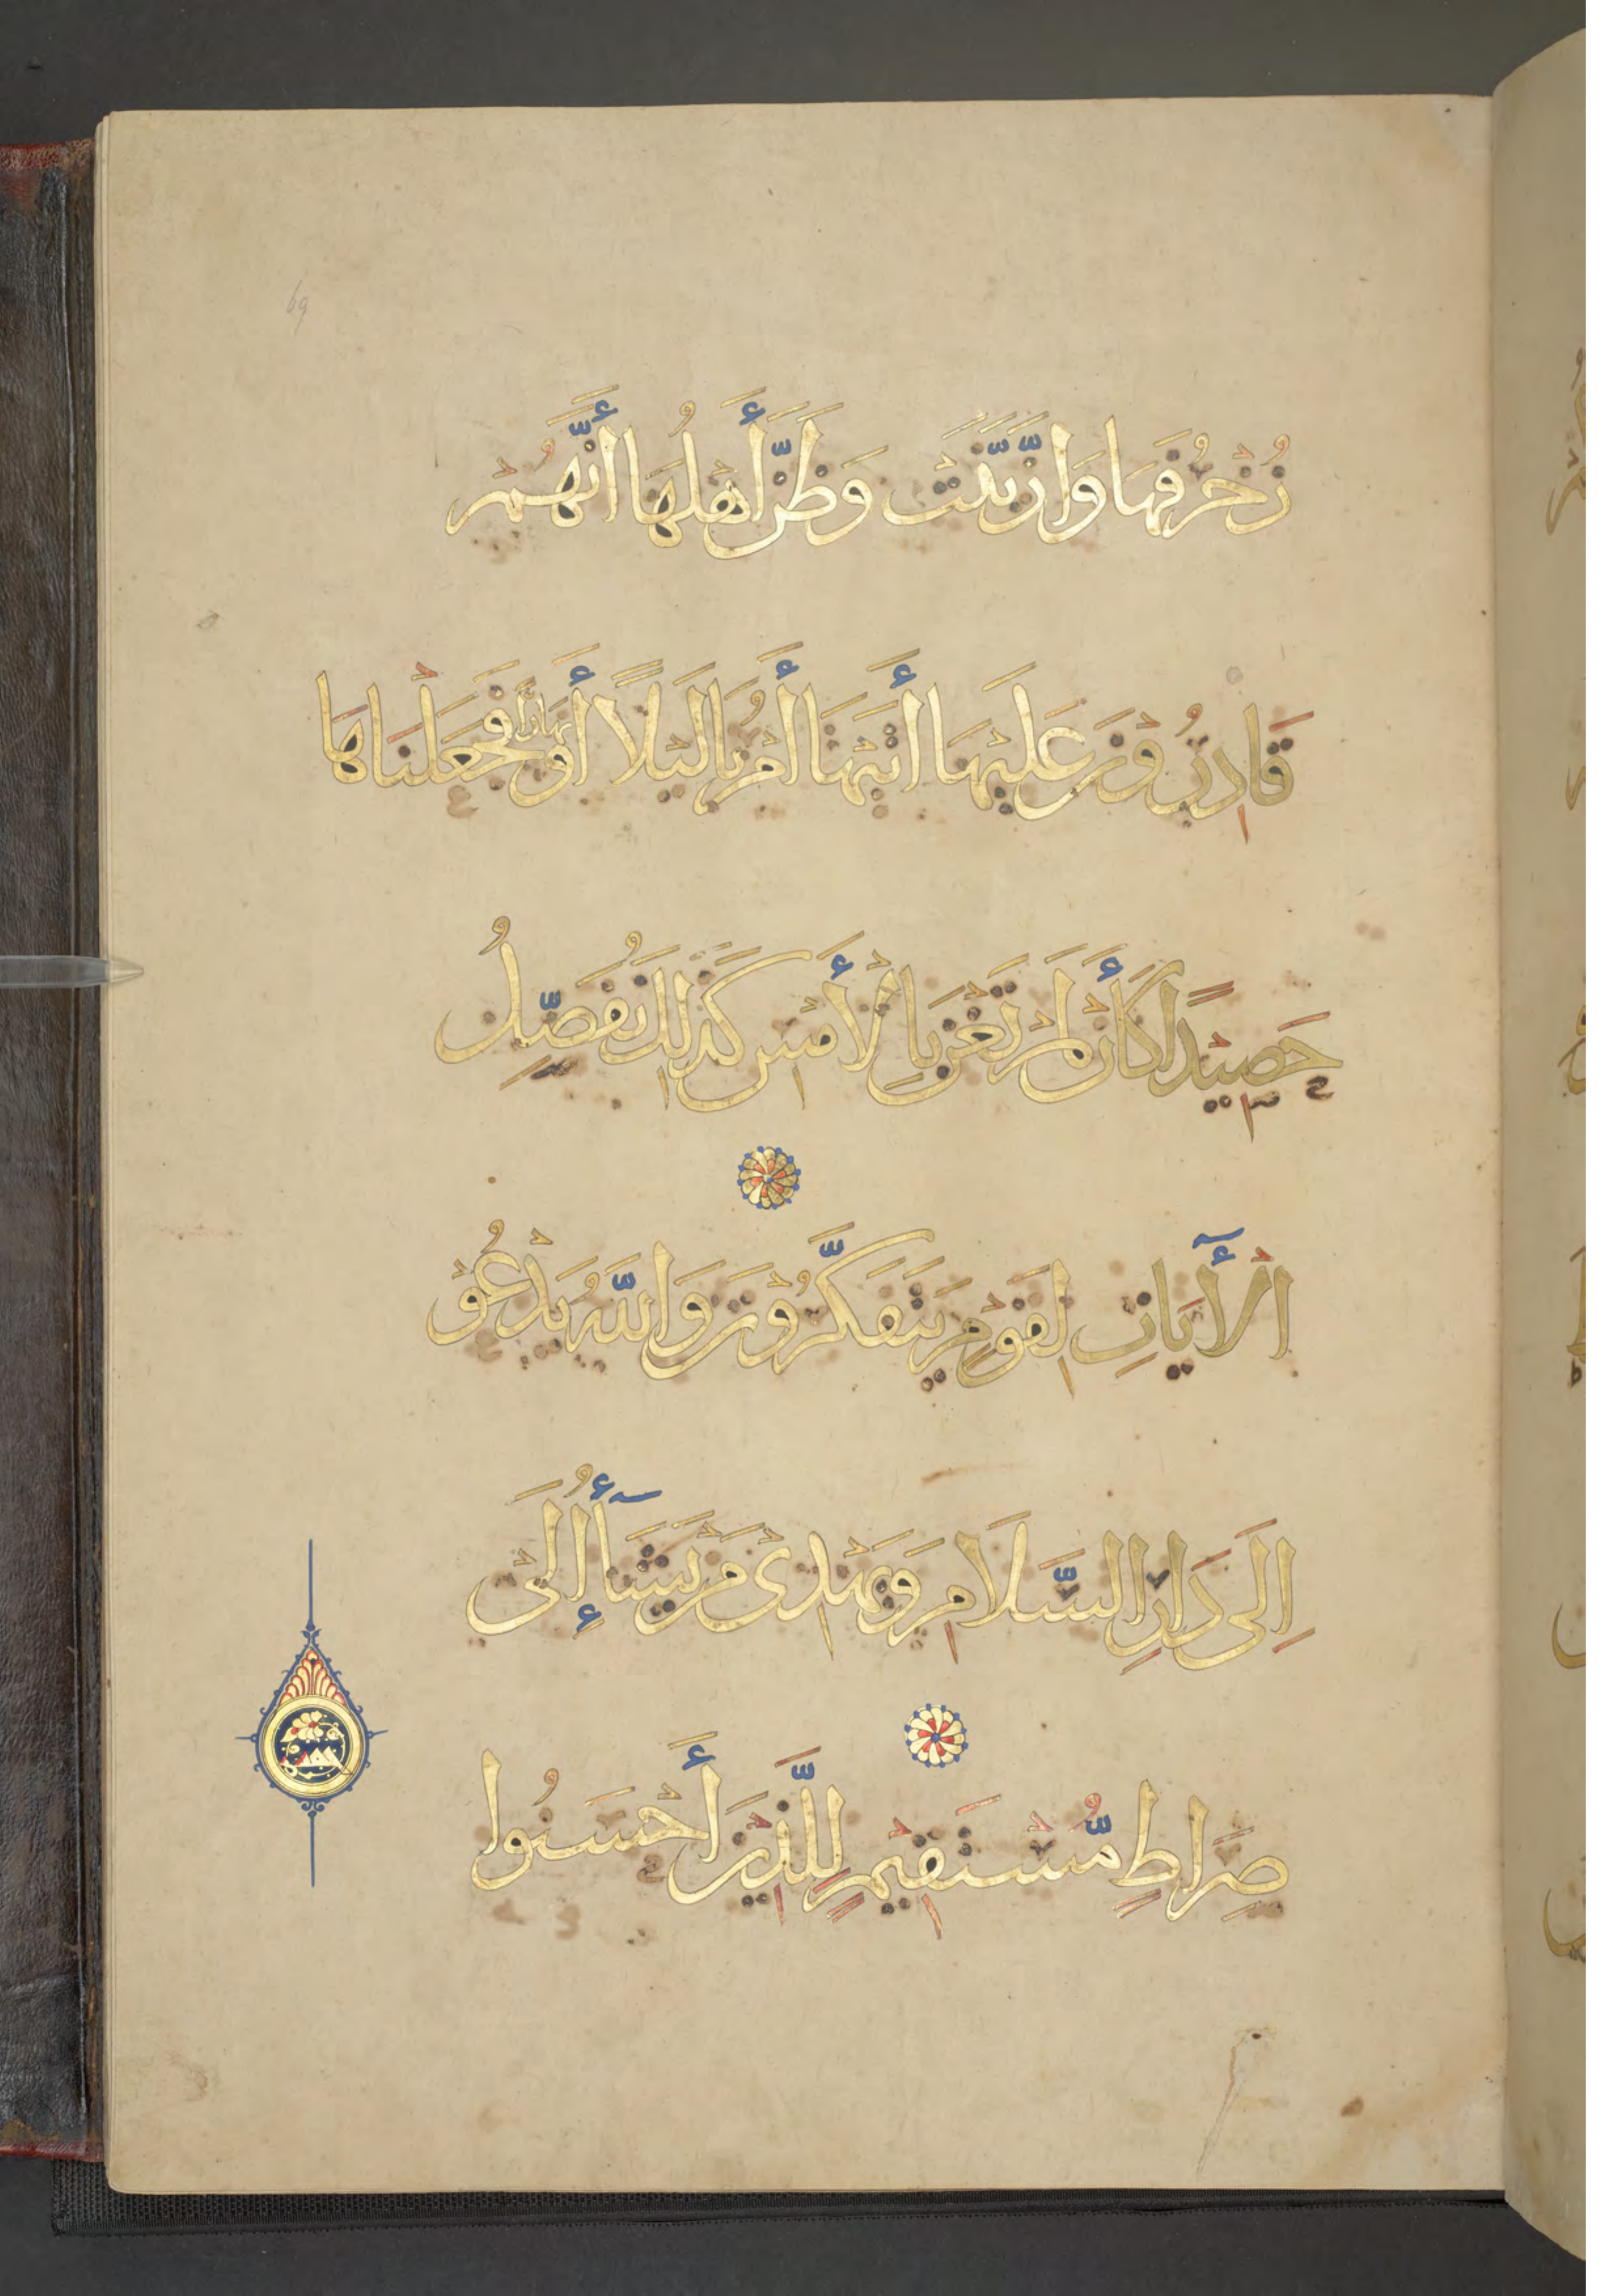 69
زُخْرُفَهَا وَازَّيَّنَتْ وَظَنَّ أَهْلُهَا أَنَّهُمْ
قَادِرُوْنَ عَلَيْهَا أَتَيْهَا أَمْرُنَا لَيْلًا أَوْ نَهَارًا فَجَعَلْنَاهَا
حَصِيْدًا كَأَنْ لَمْ تَغْنَ بِالْأَمْسِ كَذَلِكَ نُفَصِّلُ
الْآيَاتِ لِقَوْمٍ يَتَفَكَّرُوْنَ وَاللَّهُ يَدْعُوْ
إِلَى دَارِ السَّلَامِ وَيَهْدِىْ مَنْ يَشَآءُ إِلَىْ
صِرَاطٍ مُّسْتَقِيْمٍ لِلَّذِيْنَ أَحْسَنُوا